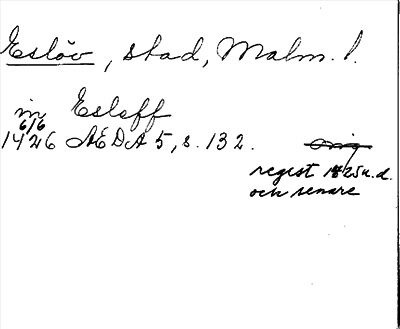 Eslöv, stad, Malm. l.
in Esleff
6/6
1426 AEDA 5, s. 132. orig
regist 1825 u.d.
och senare